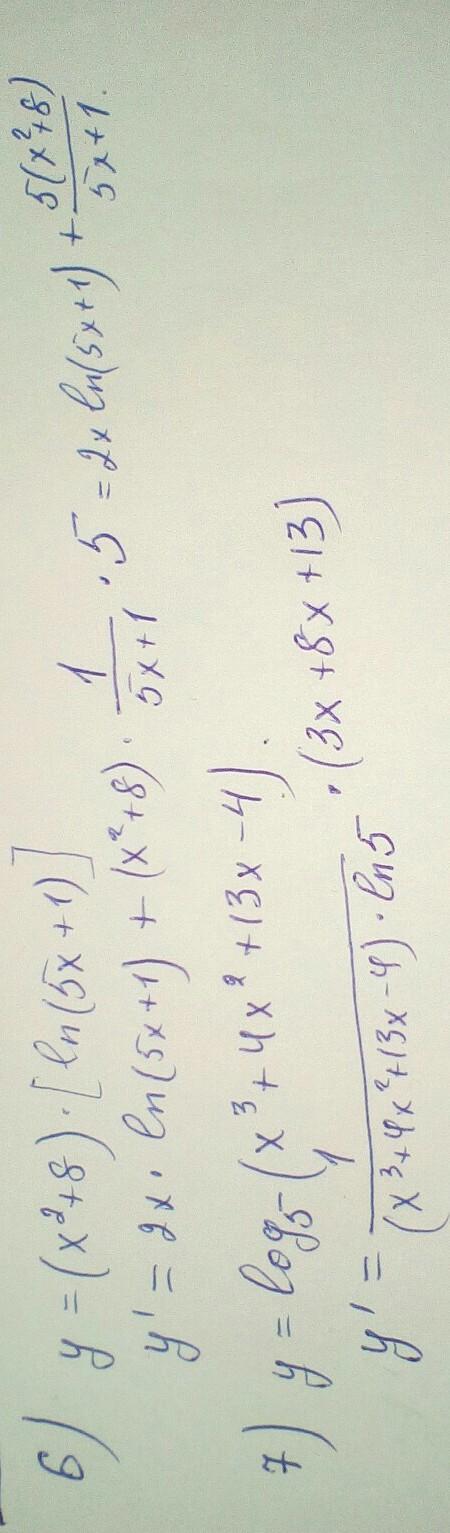 6) y = (x²+8)·[ln(5x+1)]
y' = 2x · ln(5x+1) + (x²+8) · 1/(5x+1) · 5 = 2x ln(5x+1) + 5(x²+8)/(5x+1).
7) y = log₅(x³+4x²+13x-4).
y' = 1/((x³+4x²+13x-4)·ln5) · (3x+8x+13)